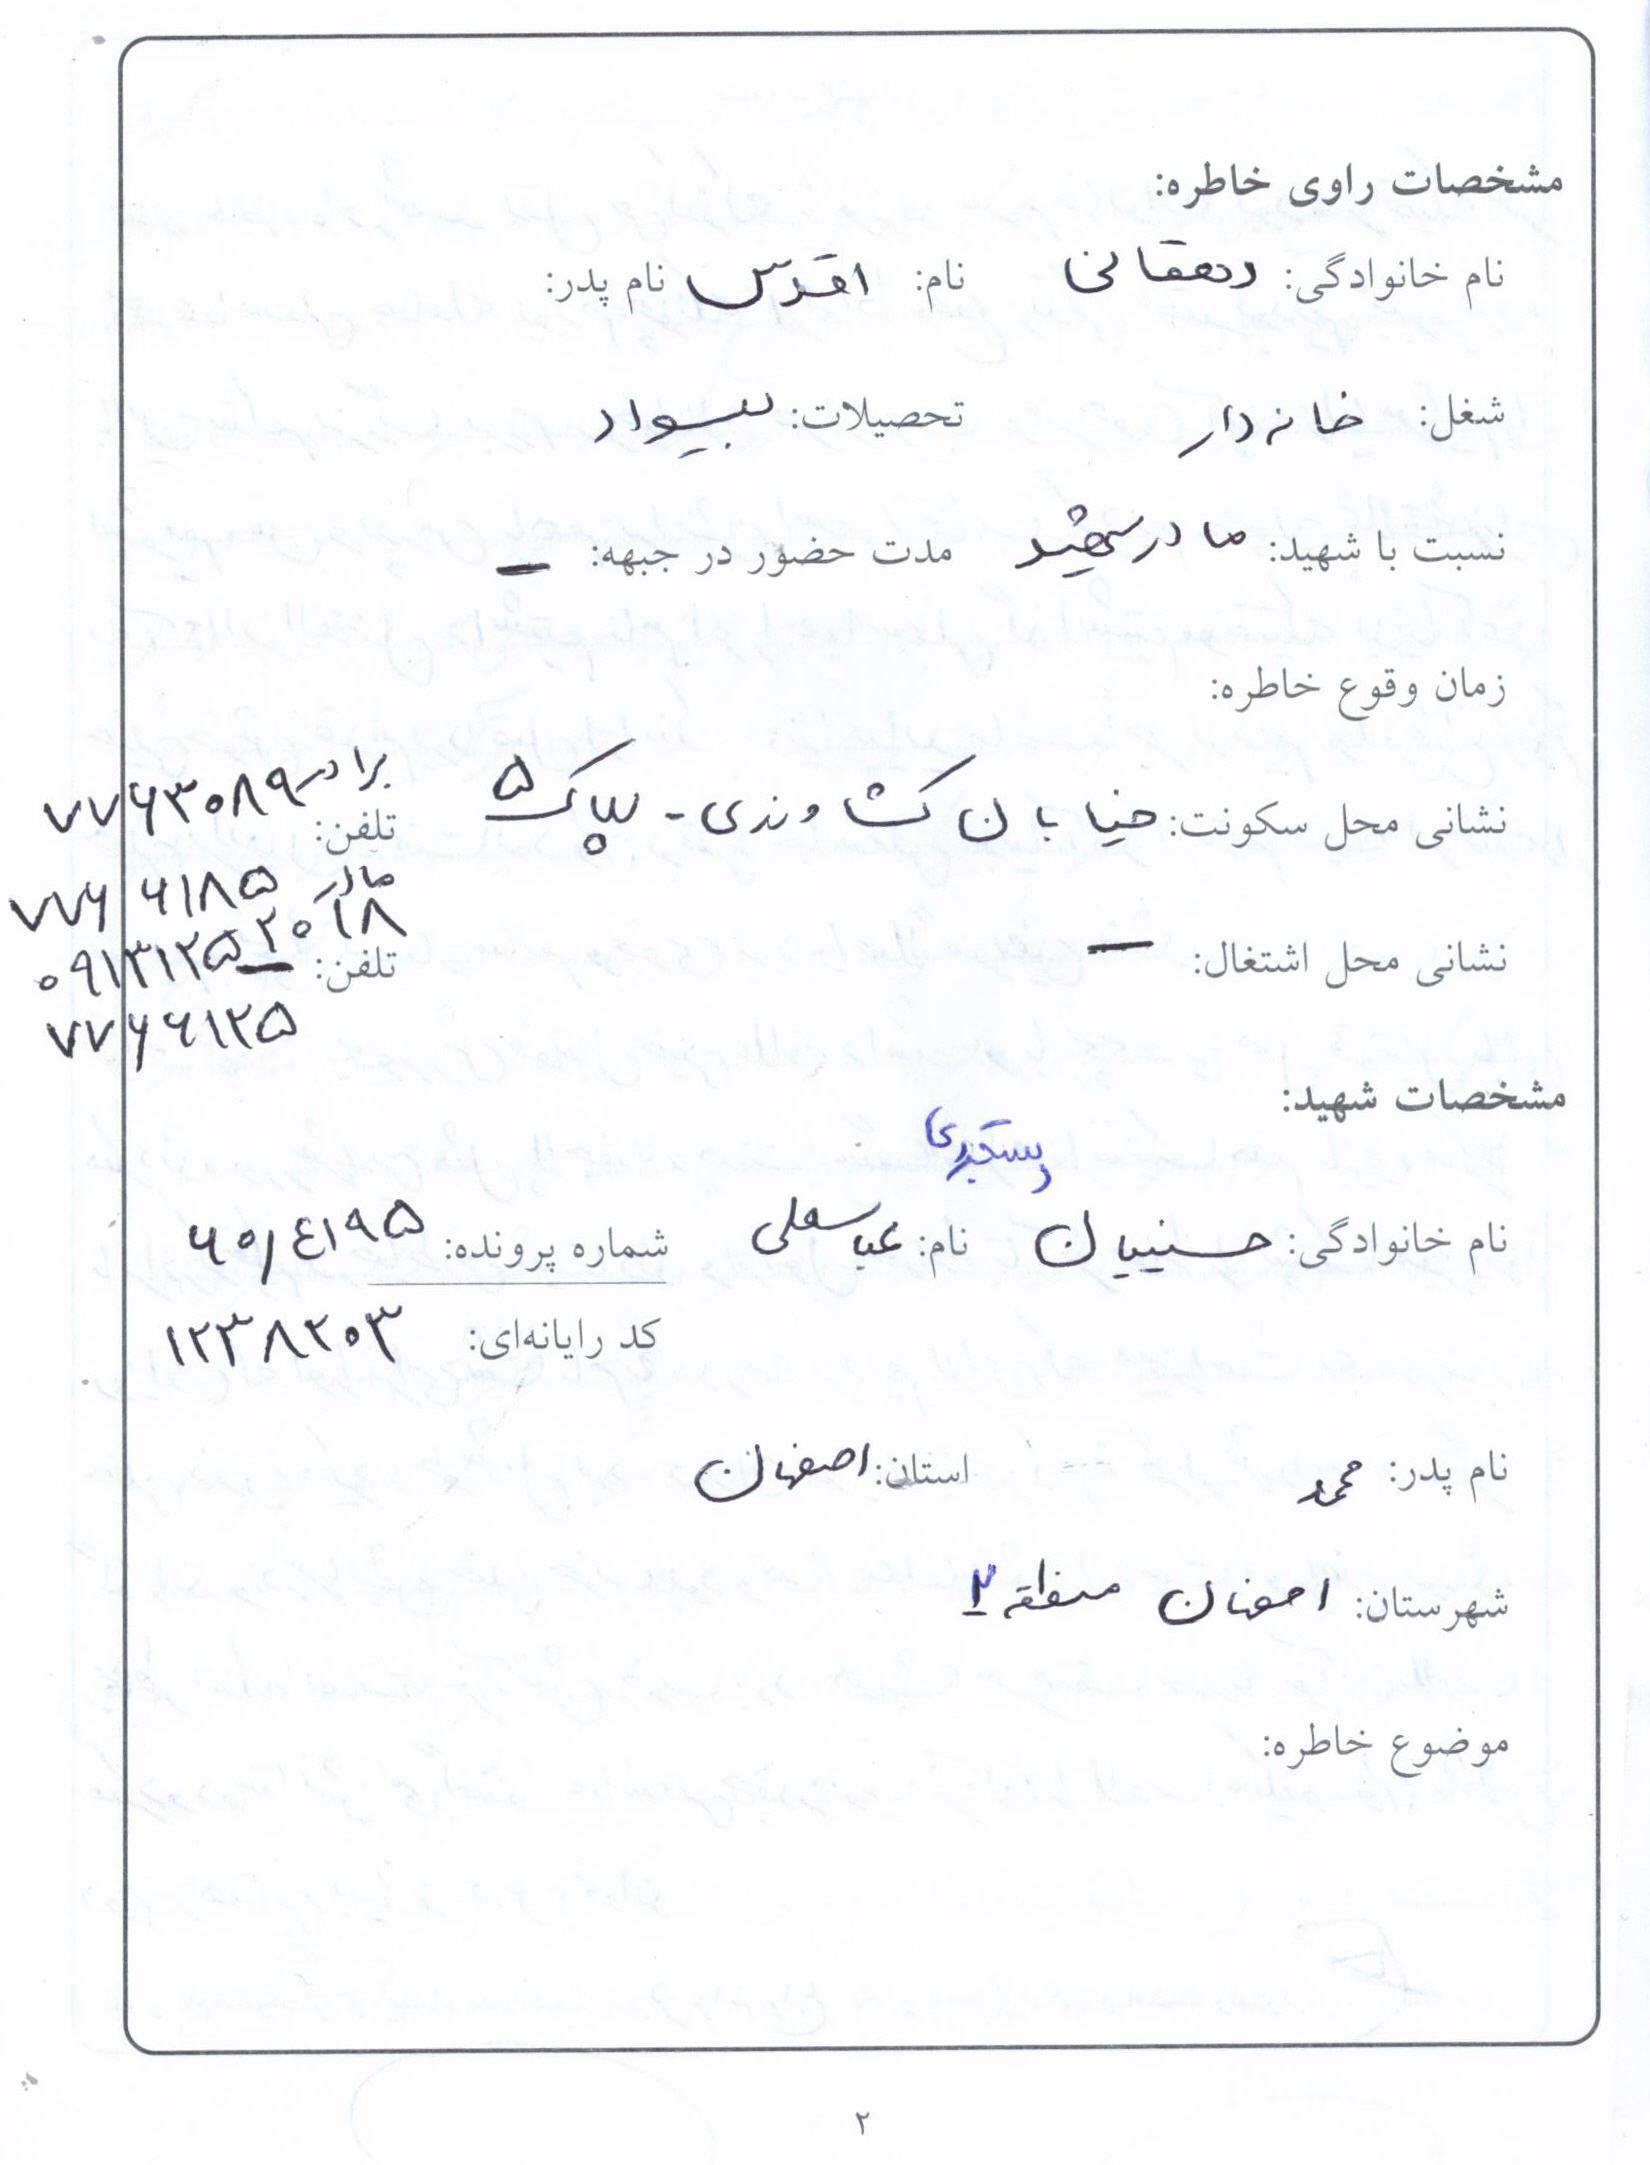 مشخصات راوی خاطره:
نام خانوادگی: دهقانی نام: اقدس نام پدر:
شغل: خانه دار تحصیلات: بیسواد
نسبت با شهید: مادر شهید مدت حضور در جبهه: –
زمان وقوع خاطره:
نشانی محل سکونت: خیابان کشاورزی - پلاک ۵ تلفن: برادر ۷۷۶۳۰۸۹
مادر ۷۷۶۶۱۸۵
نشانی محل اشتغال: – تلفن: ۰۹۱۳۱۲۵۲۰۱۸
۷۷۶۶۱۲۵
مشخصات شهید:
دستجردی
نام خانوادگی: حسنیان نام: عباسعلی شماره پرونده: ۶۰/۴۱۹۵
کد رایانه‌ای: ۱۲۳۸۲۰۳
نام پدر: محمد استان: اصفهان
شهرستان: اصفهان منطقه ۲
موضوع خاطره:
۲